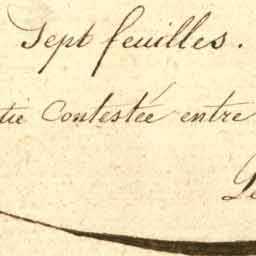 Sept feuilles.
tie Contestée entre